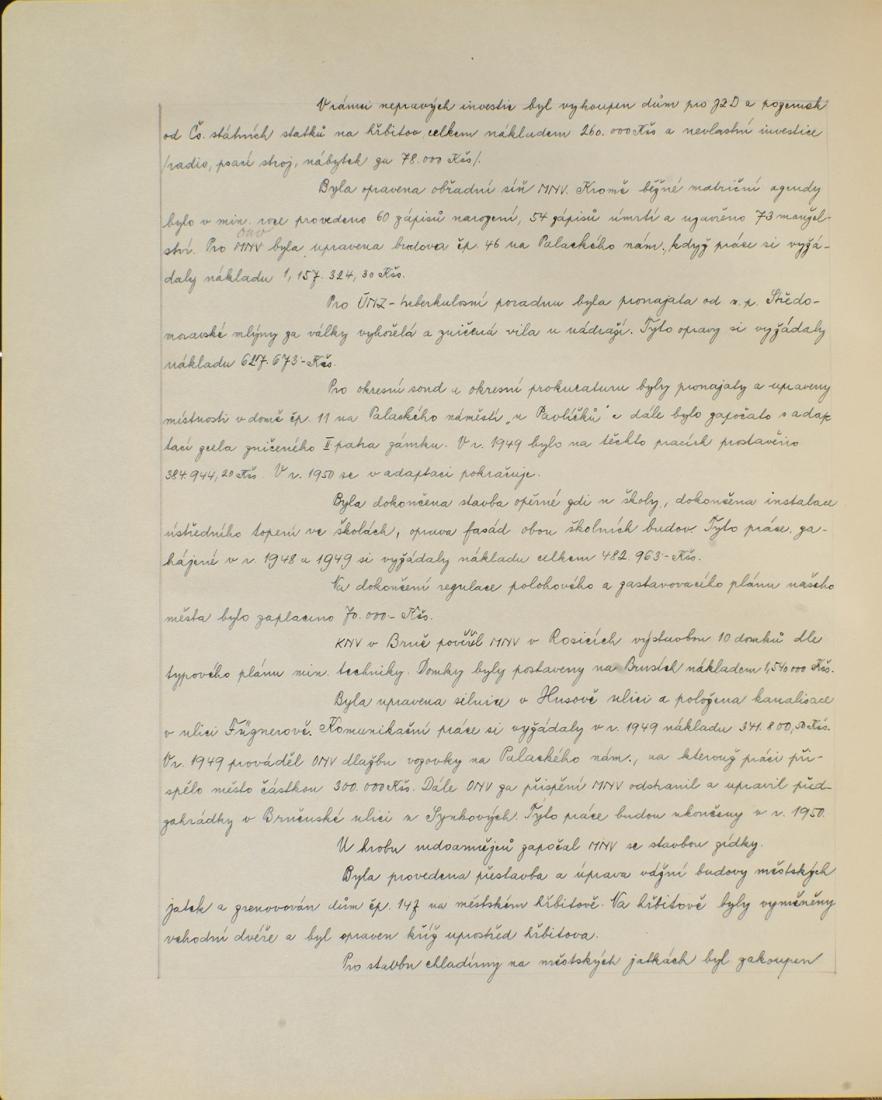 V rámci nepravých investic byl vykoupen dům pro JZD a pozemek
od Čs. státních statků na hřbitov, celkem nákladem 260.000 Kčs a nevlastní investice
/radio, psací stroj, nábytek za 78.000 Kčs/.
Byla opravena obřadní síň MNV. Kromě běžné matriční agendy
bylo v min. roce provedeno 60 zápisů narození, 54 zápisů úmrtí a uzavřeno 73 manžel-
ONV
ství. Pro MNV byla upravena budova čp. 46 na Palackého nám., když práce si vyžá-
daly nákladu 1,157.324,30 Kčs.
Pro ÚNZ - tuberkulosní poradnu byla pronajata od n.p. Středo-
moravské mlýny za války vyhořelá a zničená vila u nádraží. Tyto opravy si vyžádaly
nákladu 627.673.- Kčs.
Pro okresní soud a okresní prokuraturu byly pronajaty a upraveny
místnosti v domě čp. 11 na Palackého náměstí „u Pavlíčků" a dále bylo započato s adap
tací zcela zničeného II. patra zámku. V r. 1949 bylo na těchto pracích prostavěno
384.944,20 Kčs. V r. 1950 se v adaptaci pokračuje.
Byla dokončena stavba opěrné zdi u školy, dokončena instalace
ústředního topení ve školách, oprava fasád obou školních budov. Tyto práce, za-
hájené v r. 1948 a 1949 si vyžádaly nákladu celkem 482.963.- Kčs.
Na dokončení regulace polohového a zastavovacího plánu našeho
města bylo zaplaceno 70.000.- Kčs.
KNV v Brně pověřil MNV v Rosicích výstavbou 10 domků dle
typového plánu min. techniky. Domky byly postaveny na Brusích nákladem 1,540.000 Kčs.
Byla upravena silnice v Husově ulici a položena kanalisace
v ulici Fügnerově. Komunikační práce si vyžádaly v r. 1949 nákladu 341.800,50 Kčs.
V r. 1949 prováděl ONV dlažbu vozovky na Palackého nám., na kterouž práci při-
spělo město částkou 300.000 Kčs. Dále ONV za přispění MNV odstranil a upravil před-
zahrádky v Brněnské ulici u Synkových. Tyto práce budou ukončeny v r. 1950.
U hrobu rudoarmějců započal MNV se stavbou zídky.
Byla provedena přestavba a úprava vážní budovy městských
jatek a zrenovován dům čp. 147 na městském hřbitově. Na hřbitově byly vyměněny
vchodní dvéře a byl opraven kříž uprostřed hřbitova.
Pro stavbu chladírny na městských jatkách byl zakoupen